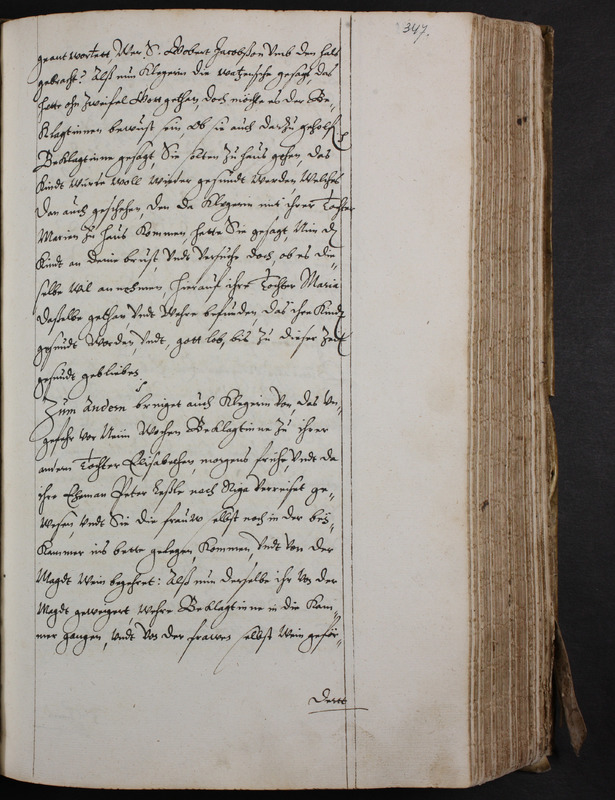 347.
geantwortett, Wer S. Robert Jacobßon vmb den halß
gebracht? Alß nun Klegerin die  gesagt, das
hette ohn Zweifel Gott gethan, doch möchte es der Be¬
klagtinnen bewust sein ob sie auch darzu geholffen
Beklagtinne gesagt, Sie solten zu hauß gehen, das
Kindt würte woll wieder gesundt werden, Welches
dan auch geschehen, den da Klegerin mit ihrer Tochter
Marien zu hauß kommen hette Sie gesagt, Nim dz
Kindt an deine brust, vndt versuche doch, ob es die¬
selbe wil annehmen, hierauf ihre Tochter Maria
dasselbe gethan vndt wehre befunden das ihr Kindt
gesundt worden, vndt, gott lob, biß zu dieser Zeit
gesundt geblieben
Zum Andern bringet auch Klegerin vor, das vn¬
gefehr vor Neun Wochen Beklagtinne zu ihrer
andern Tochter Elisabethen morgens frühe, vndt da
ihr Eheman Peter  nach Riga verreiset ge¬
wesen, vndt Sie die frauw selbst noch in der bey¬
Kammer ins bette gelegen, kommen, vndt von der
Magdt Wein begehret: Alß nun derselbe ihr von der
Magdt geweigert wehre Beklagtinne in die Kam¬
mer gangen, vndt von der frawen selbst Wein geför¬
dertt